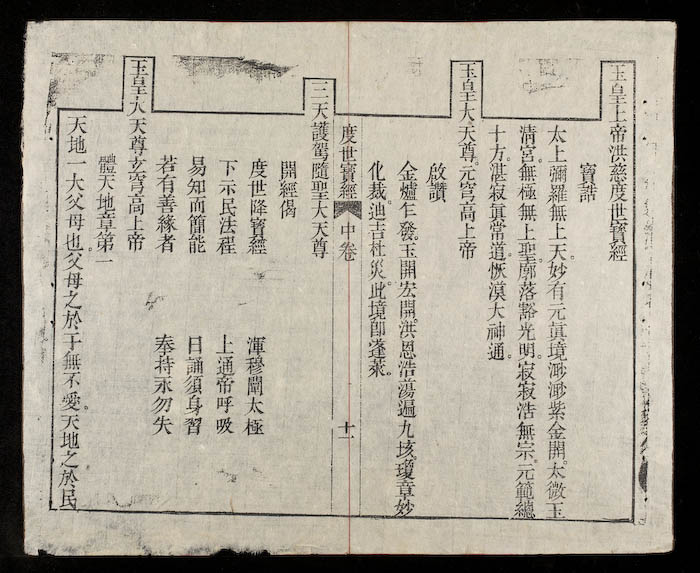 玉皇上帝洪慈度世寶經
寶誥
太上彌羅無上天。妙有元眞境。渺渺紫金開。太微玉
清宮。無極無上聖。廓落豁光明。寂寂浩無宗。元範總
十方。湛寂眞常道。恢漠大神通。
玉皇大天尊。元穹高上帝
啟讚
金爐乍發。玉開宏開。洪恩浩蕩遍九垓。瓊章妙
化裁。迪吉杜災。此境卽蓬萊。
度世寶經 中卷 十一
三天護駕隨聖大天尊
開經偈
度世降寶經 渾穆闡太極
下示民法程 上通帝呼吸
易知而簡能 日誦須身習
若有善緣者 奉持永勿失
玉皇大天尊玄穹高上帝
體天地章第一
天地一大父母也。父母之於子無不愛。天地之於民